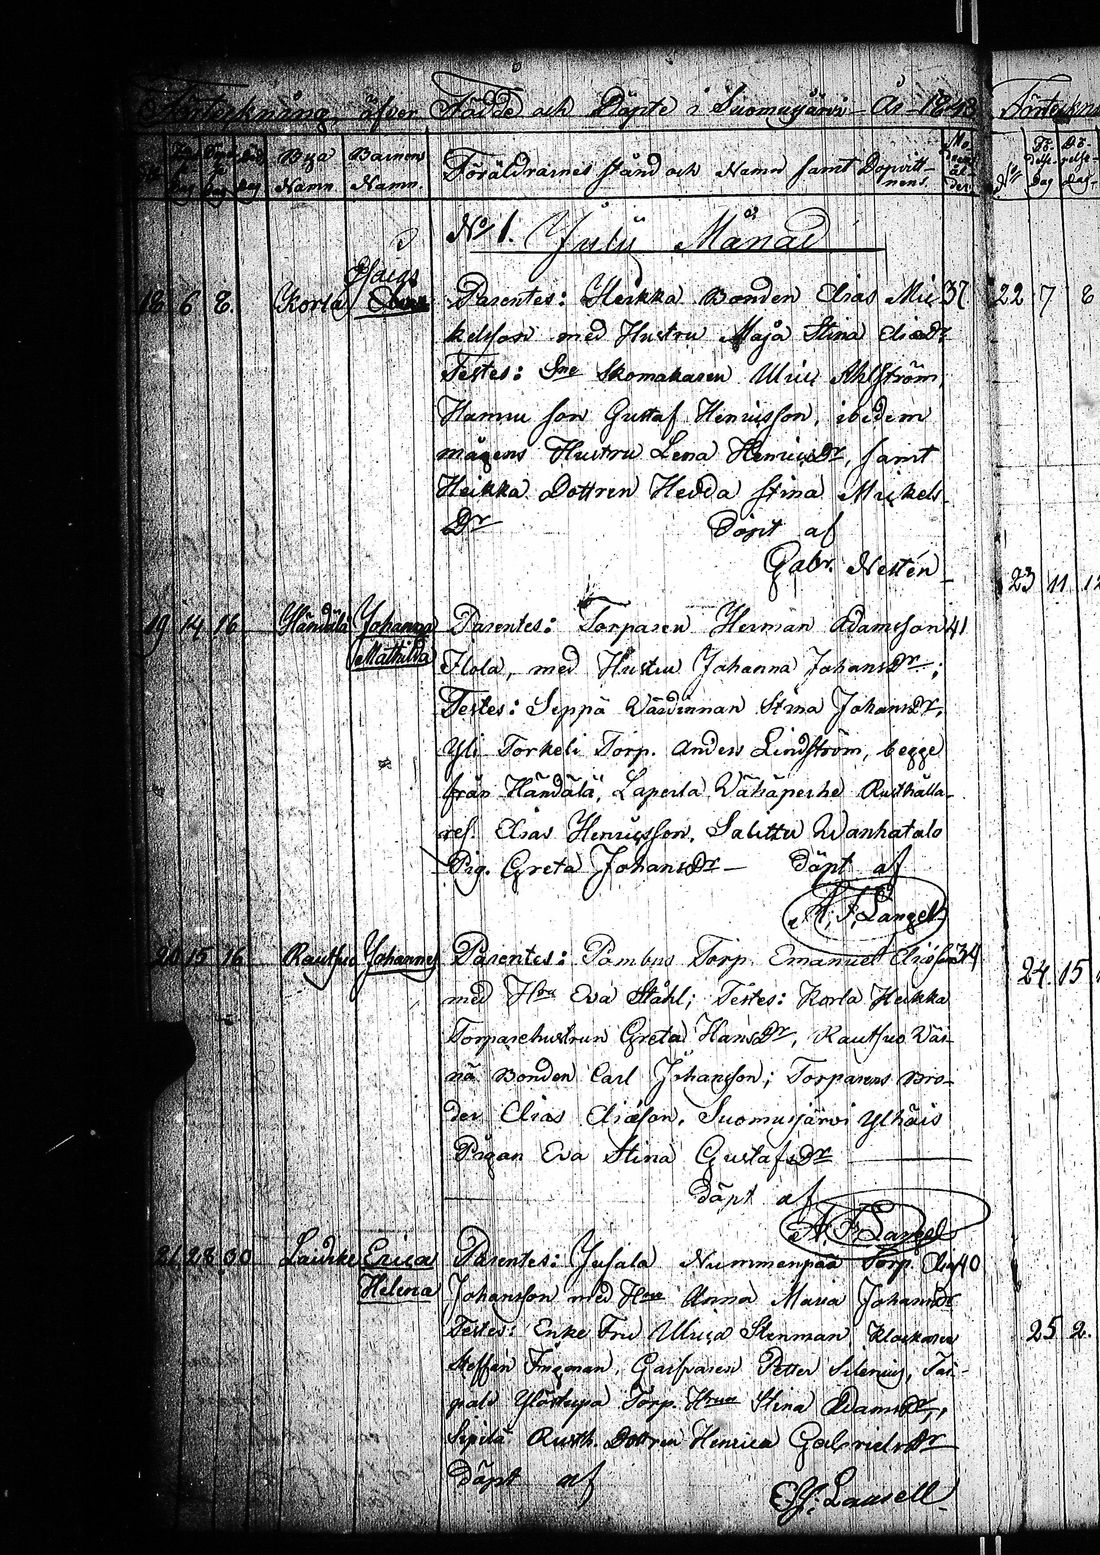 Förteckning öfver Födde och Döpte i Suomusjärvi År 1843
Bya Namn. Barnens Namn. Föräldrarnes stånd och Namn samt Dopvitt-
nens
No 1. July Månad
18. 6 8. Korla Parentes: Heikka Bonden Elias Mic 37
kelsson med Hustru Maja Stina Eliædr
Testes: Sne Skomakaren Ulric Ahlström,
Hannu son Gustaf Henricsson, ibidem
mågens Hustru Lena Henricsdr, samt
Heikka Dottren Hedda Stina Mickels-
Dr Döpt af
Gabr. Nestén
19 14 16 Händälä Johanna Parentes: Torparen Herman Adamsson 41
Mathilda Hola, med Hustru Johanna Johansdr;
Testes: Seppä Värdinnan Stina Johansdr,
Yli Torkeli Torp. Anders Lindström, begge
från Händälä, Laperla Vähäperhe Rusthålla-
res. Elias Henricsson. Salittu Wanhatalo
Pig. Greta Johansdr – Döpt af
A. F. Langell
20 15 16 Rautsuo Johannes Parentes: Pambus Torp. Emanuel Eliæson 34
med Hru Eva Ståhl; Testes: Korla Heikka
Torparehustrun Greta Hansdr, Rautsuo Vär-
nä Bonden Carl Johansson; Torparens Bro-
der Elias Eliæson, Suomusjärvi Ylhäis
Pigan Eva Stina Gustafsdr
döpt af
A. F. Langell
21. 28 30 Laidike Erica Parentes: Jusala Nummenpää Torp. Elias 40
Helena Johansson med Hru Anna Maria Johansdr
Testes: Enke Fru Ulrica Stenman Klockaren
Steffan Ingman, Garfvaren Petter Silenius, Tai-
pale Torp. Hrun Stina Adamsdr,
Sipilä Rusth. Dottren Henrica Gabrielsdr
Döpt af
22 7 8
23 11 12
24. 15
25 2.